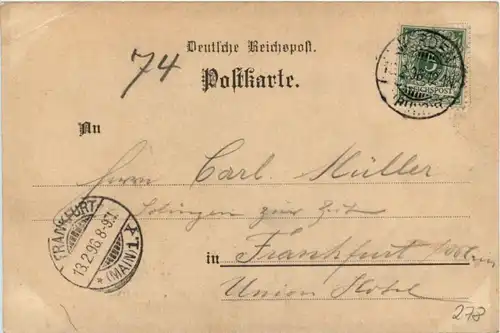 74
Deutsche Reichspost.
Postkarte.
5
REICHSPOST
An
Herrn Carl Müller
Solingen zur Zeit
in Frankfurt
Union Hotel
FRANKFURT
13.2.96.8-9V.
* (MAIN) 1.
278